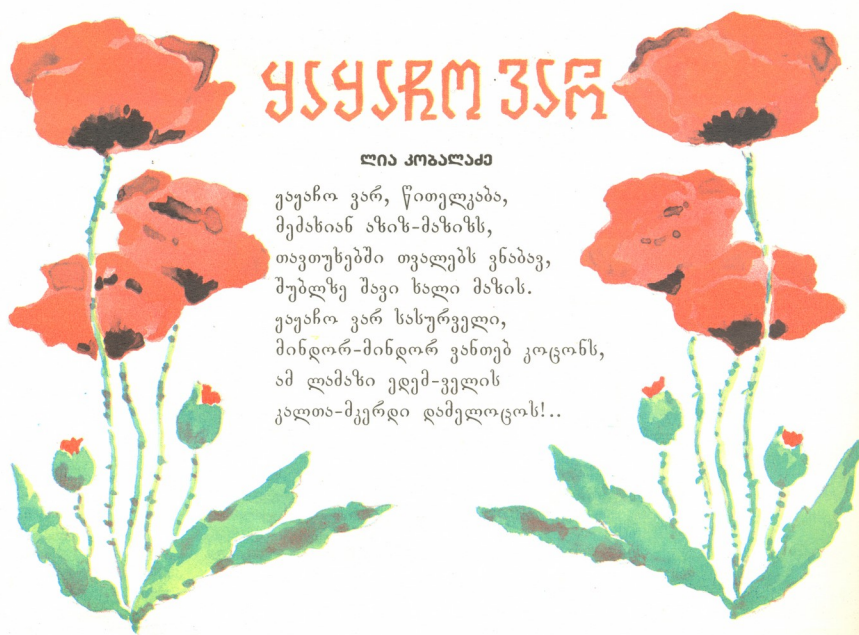 ყაყაჩო ვარ
ლია კობალაძე
ყაყაჩო ვარ, წითელკაბა,
მეძახიან აზიზ-მაზიზს,
თავთუხებში თვალებს ვნაბავ,
შუბლზე შავი ხალი მაზის.
ყაყაჩო ვარ სასურველი,
მინდორ-მინდორ ვანთებ კოცონს,
ამ ლამაზი ედემ-ველის
კალთა-მკერდი დამელოცოს!..